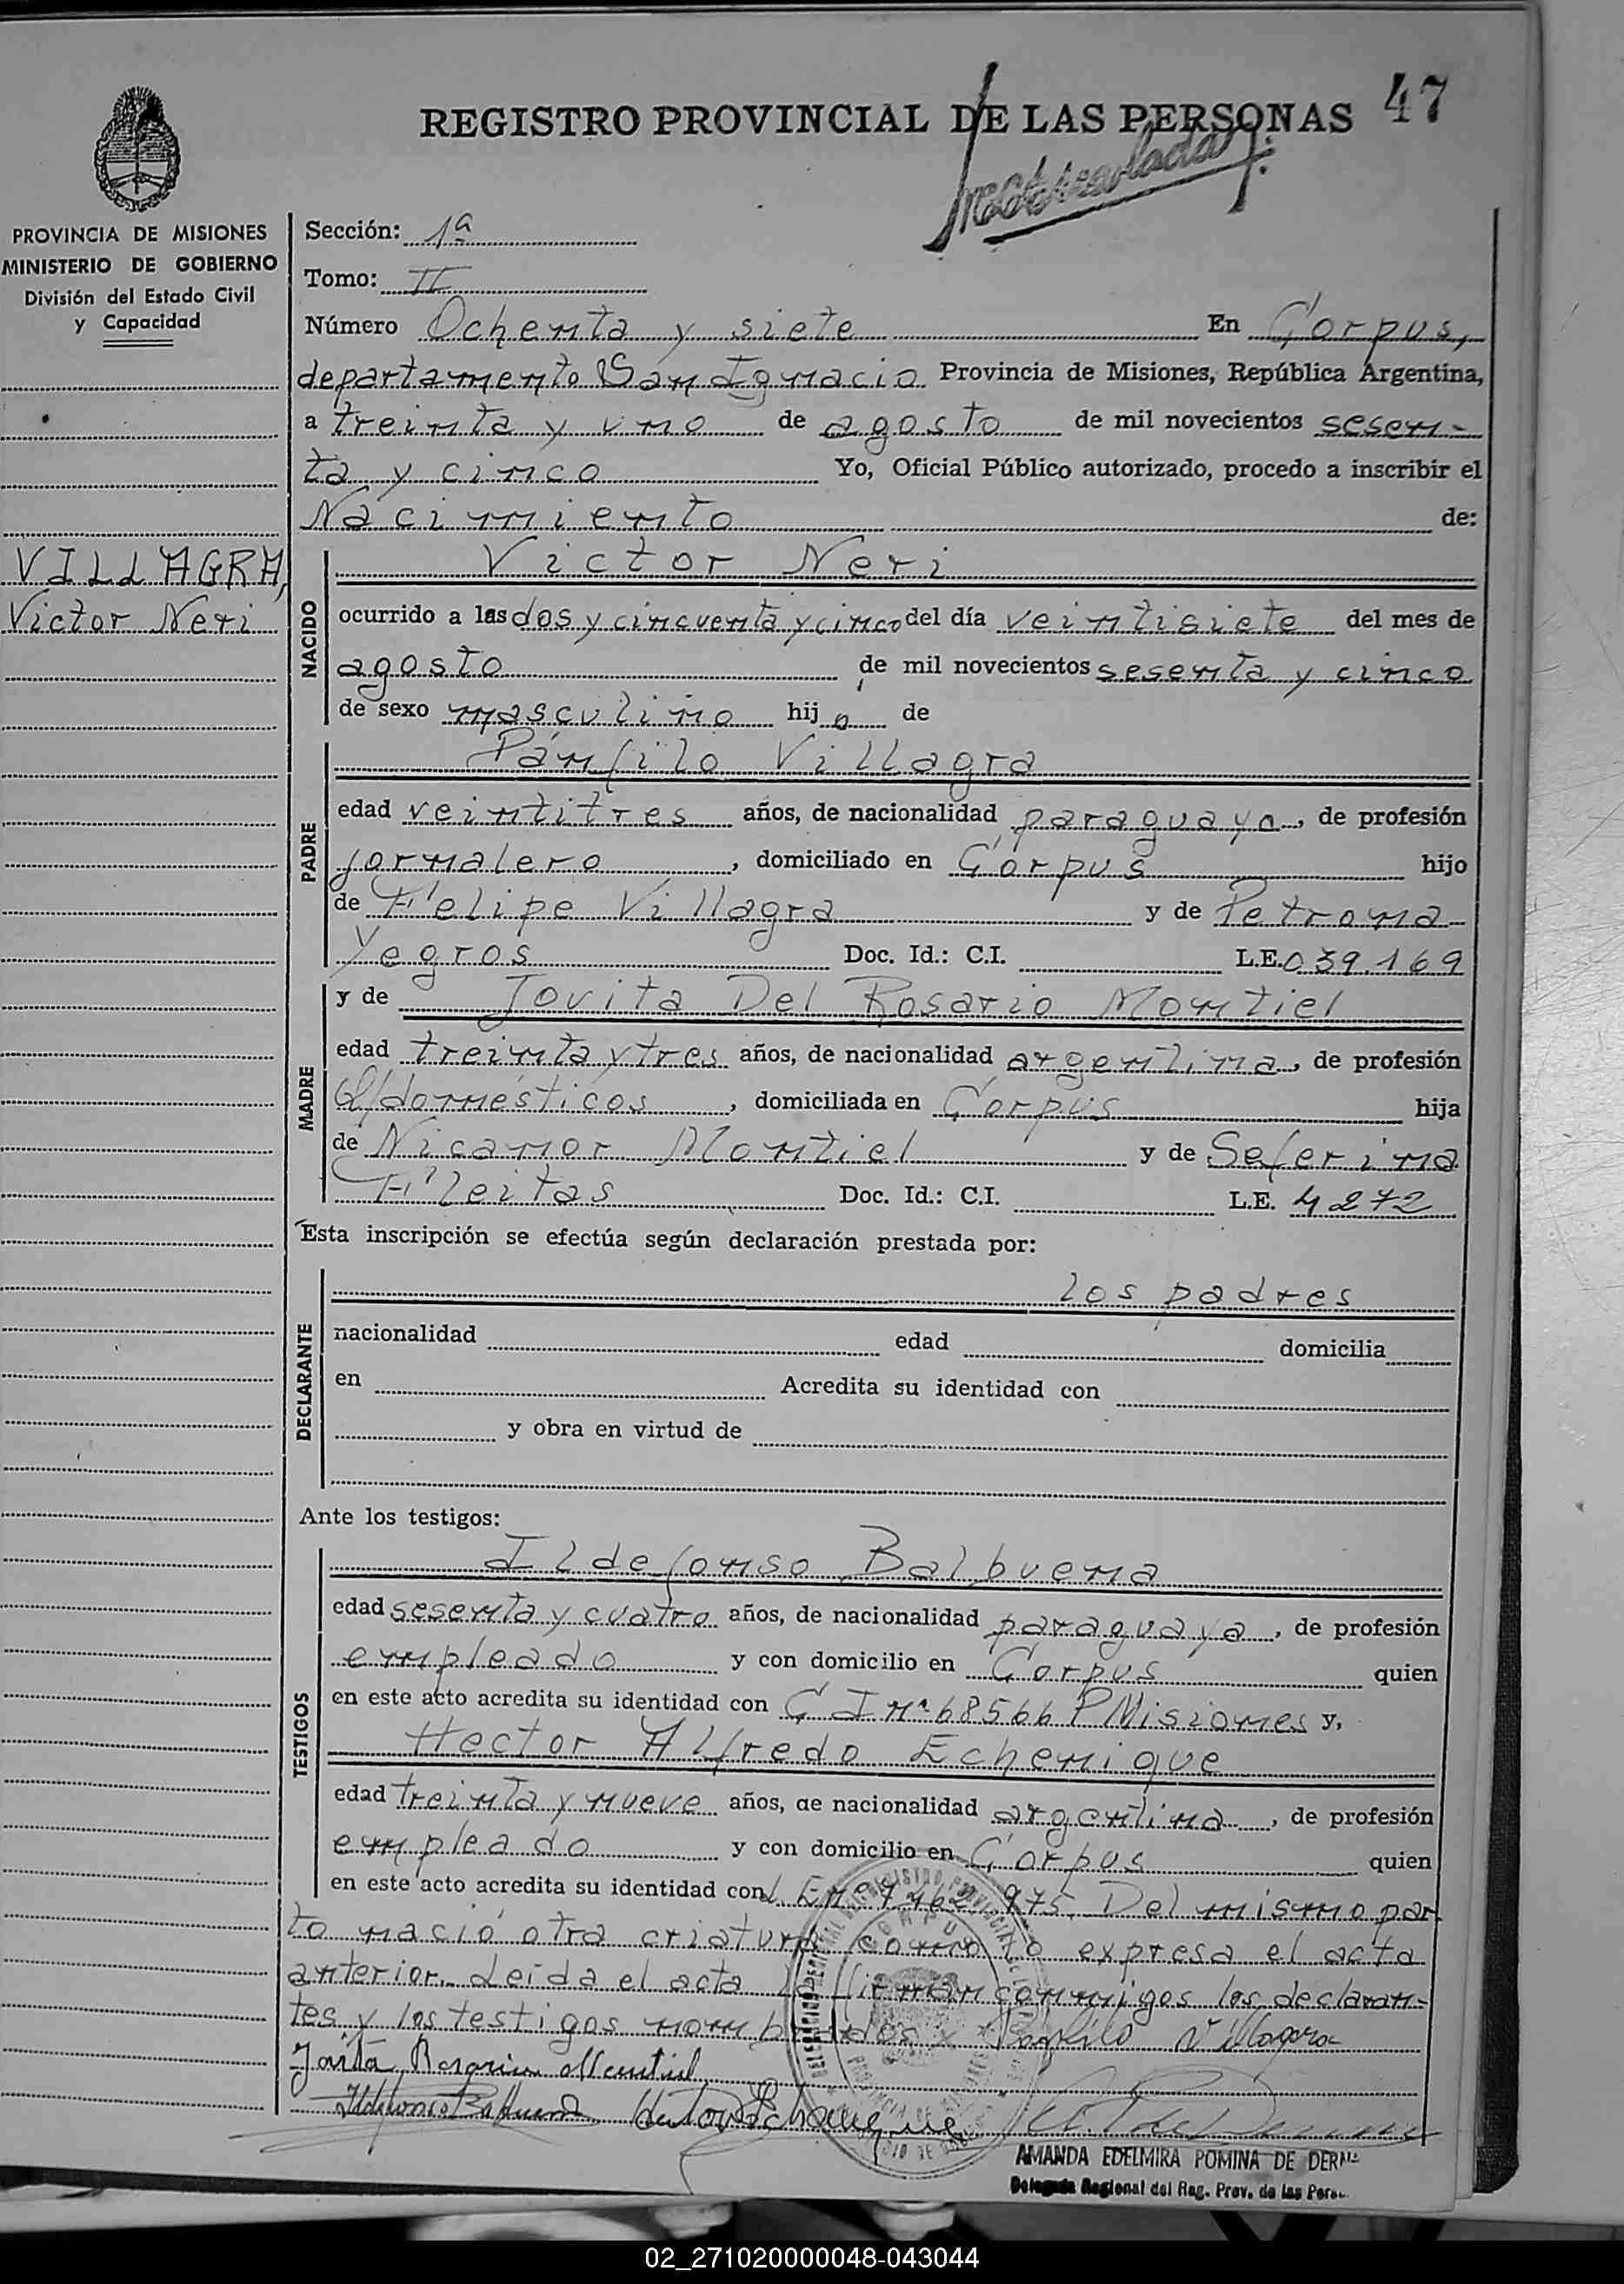 47
REGISTRO PROVINCIAL DE LAS PERSONAS
Matriculado
PROVINCIA DE MISIONES
MINISTERIO DE GOBIERNO
División del Estado Civil
y Capacidad
VILLAGRA,
Victor Neri
Sección: 1ª
Tomo: II
Número Ochenta y siete En Corpus,
departamento San Ignacio Provincia de Misiones, República Argentina,
a treinta y uno de agosto de mil novecientos sesen-
ta y cinco Yo, Oficial Público autorizado, procedo a inscribir el
Nacimiento de:
NACIDO
Victor Neri
ocurrido a las dos y cincuenta y cinco del día veintisiete del mes de
agosto de mil novecientos sesenta y cinco
de sexo masculino hijo de
PADRE
Pánfilo Villagra
edad veintitres años, de nacionalidad paraguaya, de profesión
jornalero, domiciliado en Corpus hijo
de Felipe Villagra y de Petrona
Yegros Doc. Id.: C.I. L.E. 039.169
MADRE
y de Jovita Del Rosario Montiel
edad treinta y tres años, de nacionalidad argentina, de profesión
Q/domésticos, domiciliada en Corpus hija
de Nicanor Montiel y de Seferina
Fleitas Doc. Id.: C.I. L.E. 4272
Esta inscripción se efectúa según declaración prestada por:
DECLARANTE
los padres
nacionalidad edad domicilia
en Acredita su identidad con
y obra en virtud de
Ante los testigos:
TESTIGOS
Ildefonso Balbuena
edad sesenta y cuatro años, de nacionalidad paraguaya, de profesión
empleado y con domicilio en Corpus quien
en este acto acredita su identidad con C I Nº 68566 P Misiones y,
Hector Alfredo Echenique
edad treinta y nueve años, de nacionalidad argentina, de profesión
empleado y con domicilio en Corpus quien
en este acto acredita su identidad con L E Nº 7.462.975. Del mismo par
to nació otra criatura como lo expresa el acta
anterior. Leida el acta la firman conmigos los declaran-
tes y los testigos nombrados Panfilo Villagra
Jovita Rosario Montiel
Ildefonso Balbuena Hector A Echenique
AMANDA EDELMIRA POMINA DE DERN
Delegada Regional del Reg. Prov. de las Pers.
02_271020000048-043044